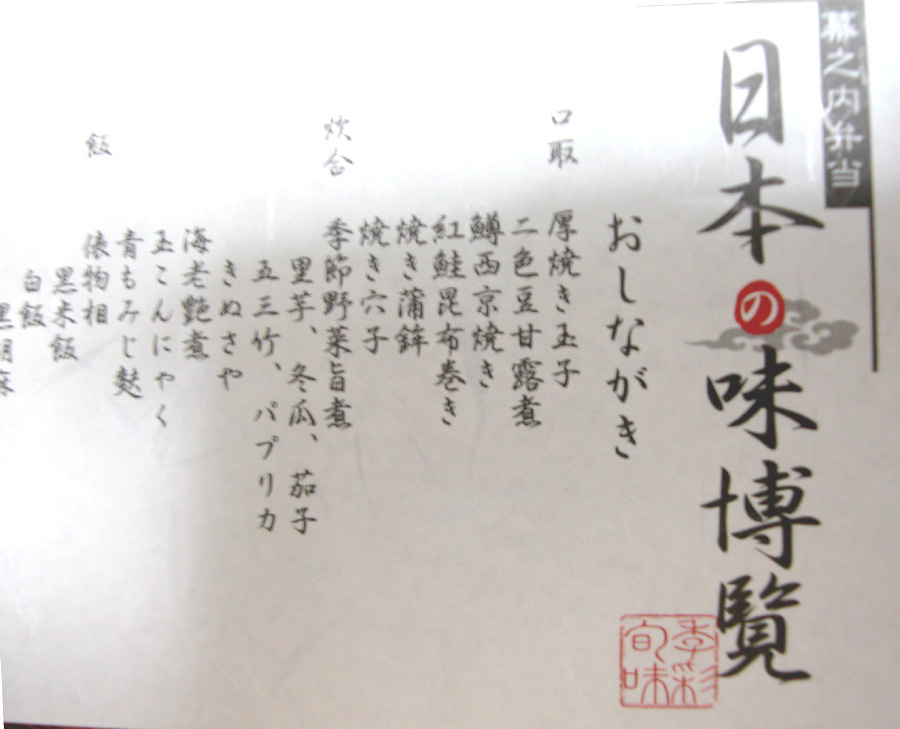 幕之内弁当
日本の味博覧
季彩
旬味
おしながき
口取
厚焼き玉子
二色豆甘露煮
鱒西京焼き
紅鮭昆布巻き
焼き蒲鉾
焼き穴子
炊合
季節野菜旨煮
里芋、冬瓜、茄子
五三竹、パプリカ
きぬさや
海老艶煮
玉こんにゃく
青もみじ麸
飯
俵物相
黒米飯
白飯
黒胡麻